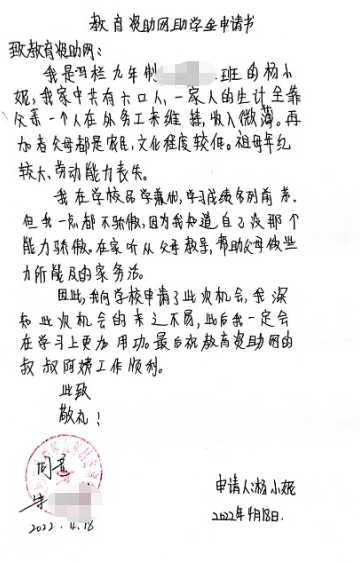 教育资助网助学金申请书
致教育资助网：
我是耳栏九年制班的杨小
妮，我家中共有六口人，一家人的生计全靠
父亲一个人在外务工来维持，收入微薄。再
加者父母都是农民，文化程度较低。祖母年纪
较大，劳动能力丧失。
我在学校品学兼优，学习成绩名列前茅，
但我一点都不骄傲，因为我知道自己没那个
能力骄傲。在家听从父母教导，帮助父母做些
力所能及的家务活。
因此，我向学校申请了此次机会，我深
知此次机会的来之不易，此后我一定会
在学习上更为用功。最后祝教育资助网的
叔叔阿姨工作顺利。
此致
敬礼！
同意
申请人：杨小妮
2022.4.18
2022年4月18日.